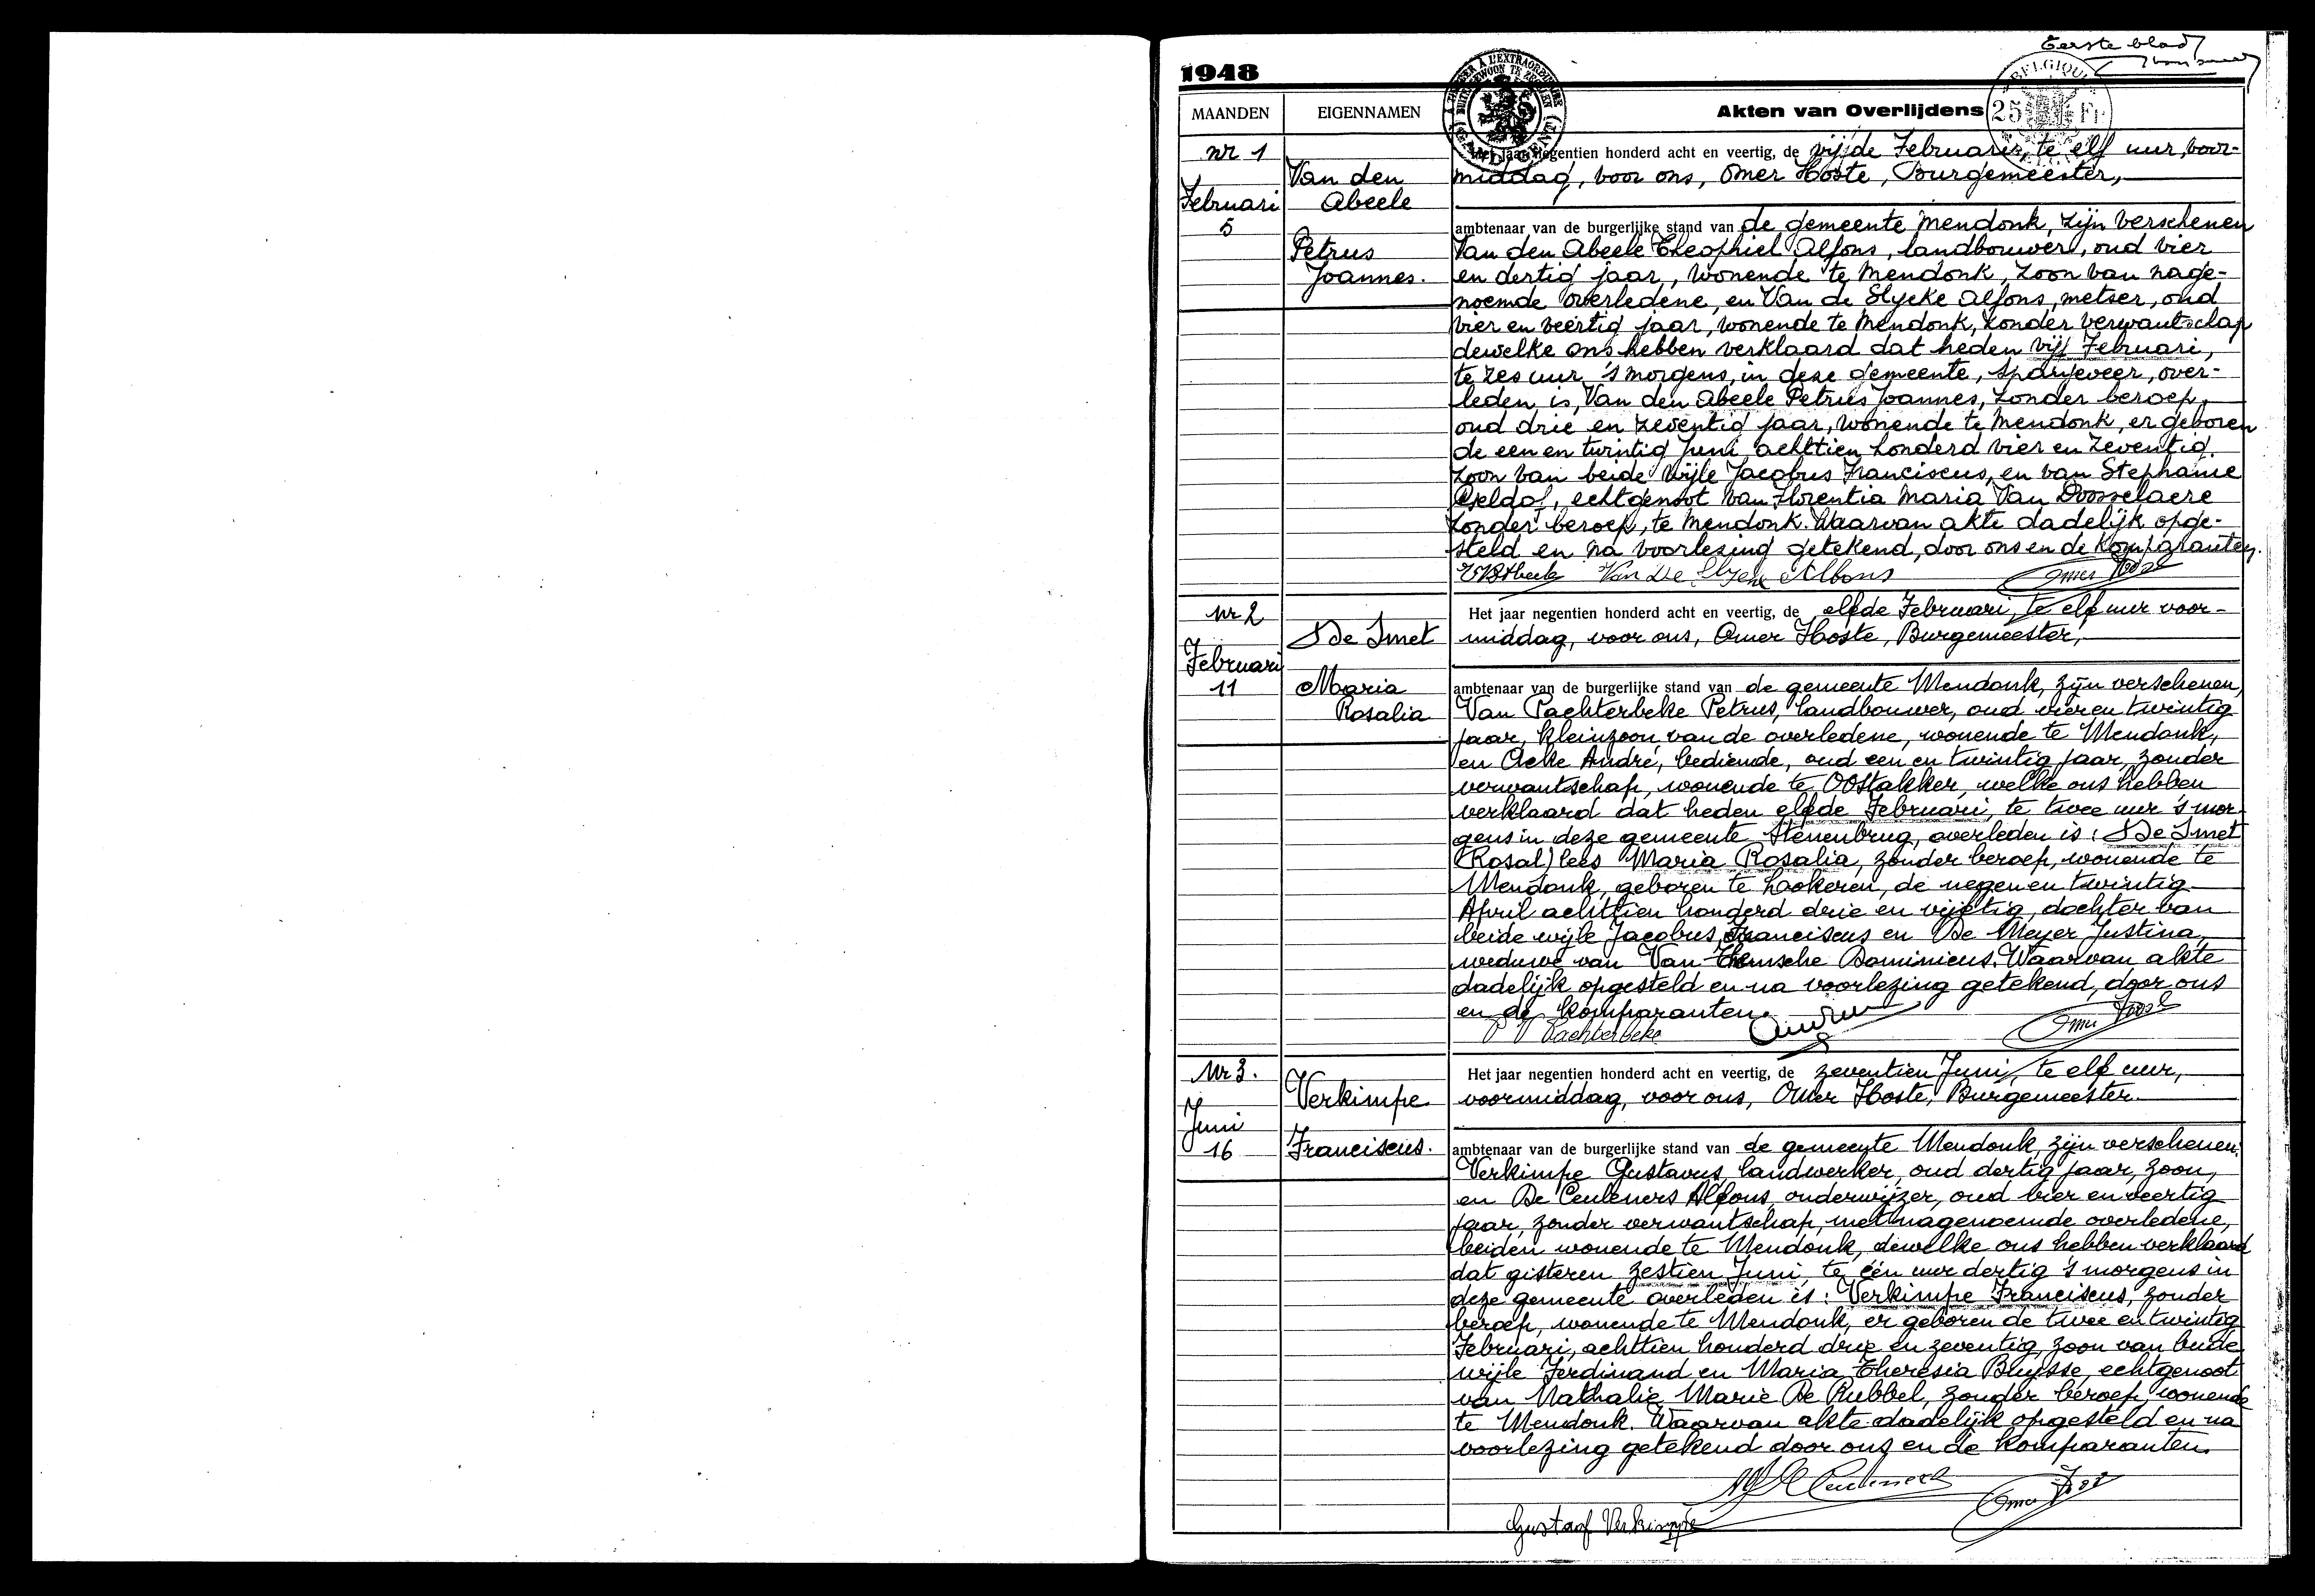 Eerste blad
1948
MAANDEN
EIGENNAMEN
Akten van Overlijdens
A L'EXTRAORDINAIRE
BELGIQUE
25 Fr
nr 1
Februari
5
Van den
Abeele
Petrus
Joannes.
Het jaar negentien honderd acht en veertig, de vijfde Februari, te elf uur, voor-
middag, voor ons, Omer Hoste, Burgemeester,
ambtenaar van de burgerlijke stand van de gemeente Mendonk, zijn verschenen
Van den Abeele Theophiel Alfons, landbouwer, oud vier
en dertig jaar, wonende te Mendonk, zoon van nage-
noemde overledene, en Van de Slycke Alfons, metser, oud
vier en veertig jaar, wonende te Mendonk, zonder verwantschap
dewelke ons hebben verklaard dat heden vijf Februari,
te zes uur 's morgens, in deze gemeente, Spanjeveer, over-
leden is, Van den Abeele Petrus Joannes, zonder beroep,
oud drie en zeventig jaar, wonende te Mendonk, er geboren
de een en twintig Juni achttien honderd vier en zeventig.
zoon van beide wijle Jacobus Franciscus, en van Stephanie
echtgenoot van Florentia Maria Van Dosselaere
zonder beroep, te Mendonk. Waarvan akte dadelijk opge-
steld en na voorlezing getekend, door ons en de komparanten.
Van De Slycke Alfons Omer Hoste
Nr 2
Februari
11
De Smet
Maria
Rosalia
Het jaar negentien honderd acht en veertig, de elfde Februari, te elf uur voor-
middag, voor ons, Omer Hoste, Burgemeester,
ambtenaar van de burgerlijke stand van de gemeente Mendonk, zijn verschenen,
Van Pachterbeke Petrus, landbouwer, oud vier en twintig
jaar, kleinzoon van de overledene, wonende te Mendonk,
en Acke André, bediende, oud een en twintig jaar, zonder
verwantschap, wonende te Oostakker, welke ons hebben
verklaard dat heden elfde Februari, te twee uur 's mor-
gens in deze gemeente Stenenbrug, overleden is: De Smet
(Rosal) lees Maria Rosalia, zonder beroep, wonende te
Mendonk, geboren te Lookeren, de negen en twintig
April achttien honderd drie en vijftig, dochter van
beide wijle Jacobus Franciscus en De Meyer Justina,
weduwe van Van Themsche Dominicus. Waarvan akte
dadelijk opgesteld en na voorlezing getekend, door ons
en de komparanten.
P V Pachterbeke Omer Hoste
Nr 3.
Juni
16
Verkimpe
Franciscus.
Het jaar negentien honderd acht en veertig, de zeventien Juni, te elf uur,
voormiddag, voor ons, Omer Hoste, Burgemeester.
ambtenaar van de burgerlijke stand van de gemeente Mendonk, zijn verschenen:
Verkimpe Gustavus, landwerker, oud dertig jaar, zoon,
en De Ceuleners Alfons, onderwijzer, oud vier en veertig
jaar, zonder verwantschap, met nagenoemde overledene,
beiden wonende te Mendonk, dewelke ons hebben verklaard
dat gisteren zestien Juni, te één uur dertig 's morgens in
deze gemeente overleden is: Verkimpe Franciscus, zonder
beroep, wonende te Mendonk, er geboren de twee en twintig
Februari, achttien honderd drie en zeventig, zoon van beide
wijle Ferdinand en Maria Theresia Buysse, echtgenoot
van Nathalie Marie De Rubbel, zonder beroep, wonende
te Mendonk. Waarvan akte dadelijk opgesteld en na
voorlezing getekend door ons en de komparanten.
Omer Hoste
Gustaaf Verkimpe